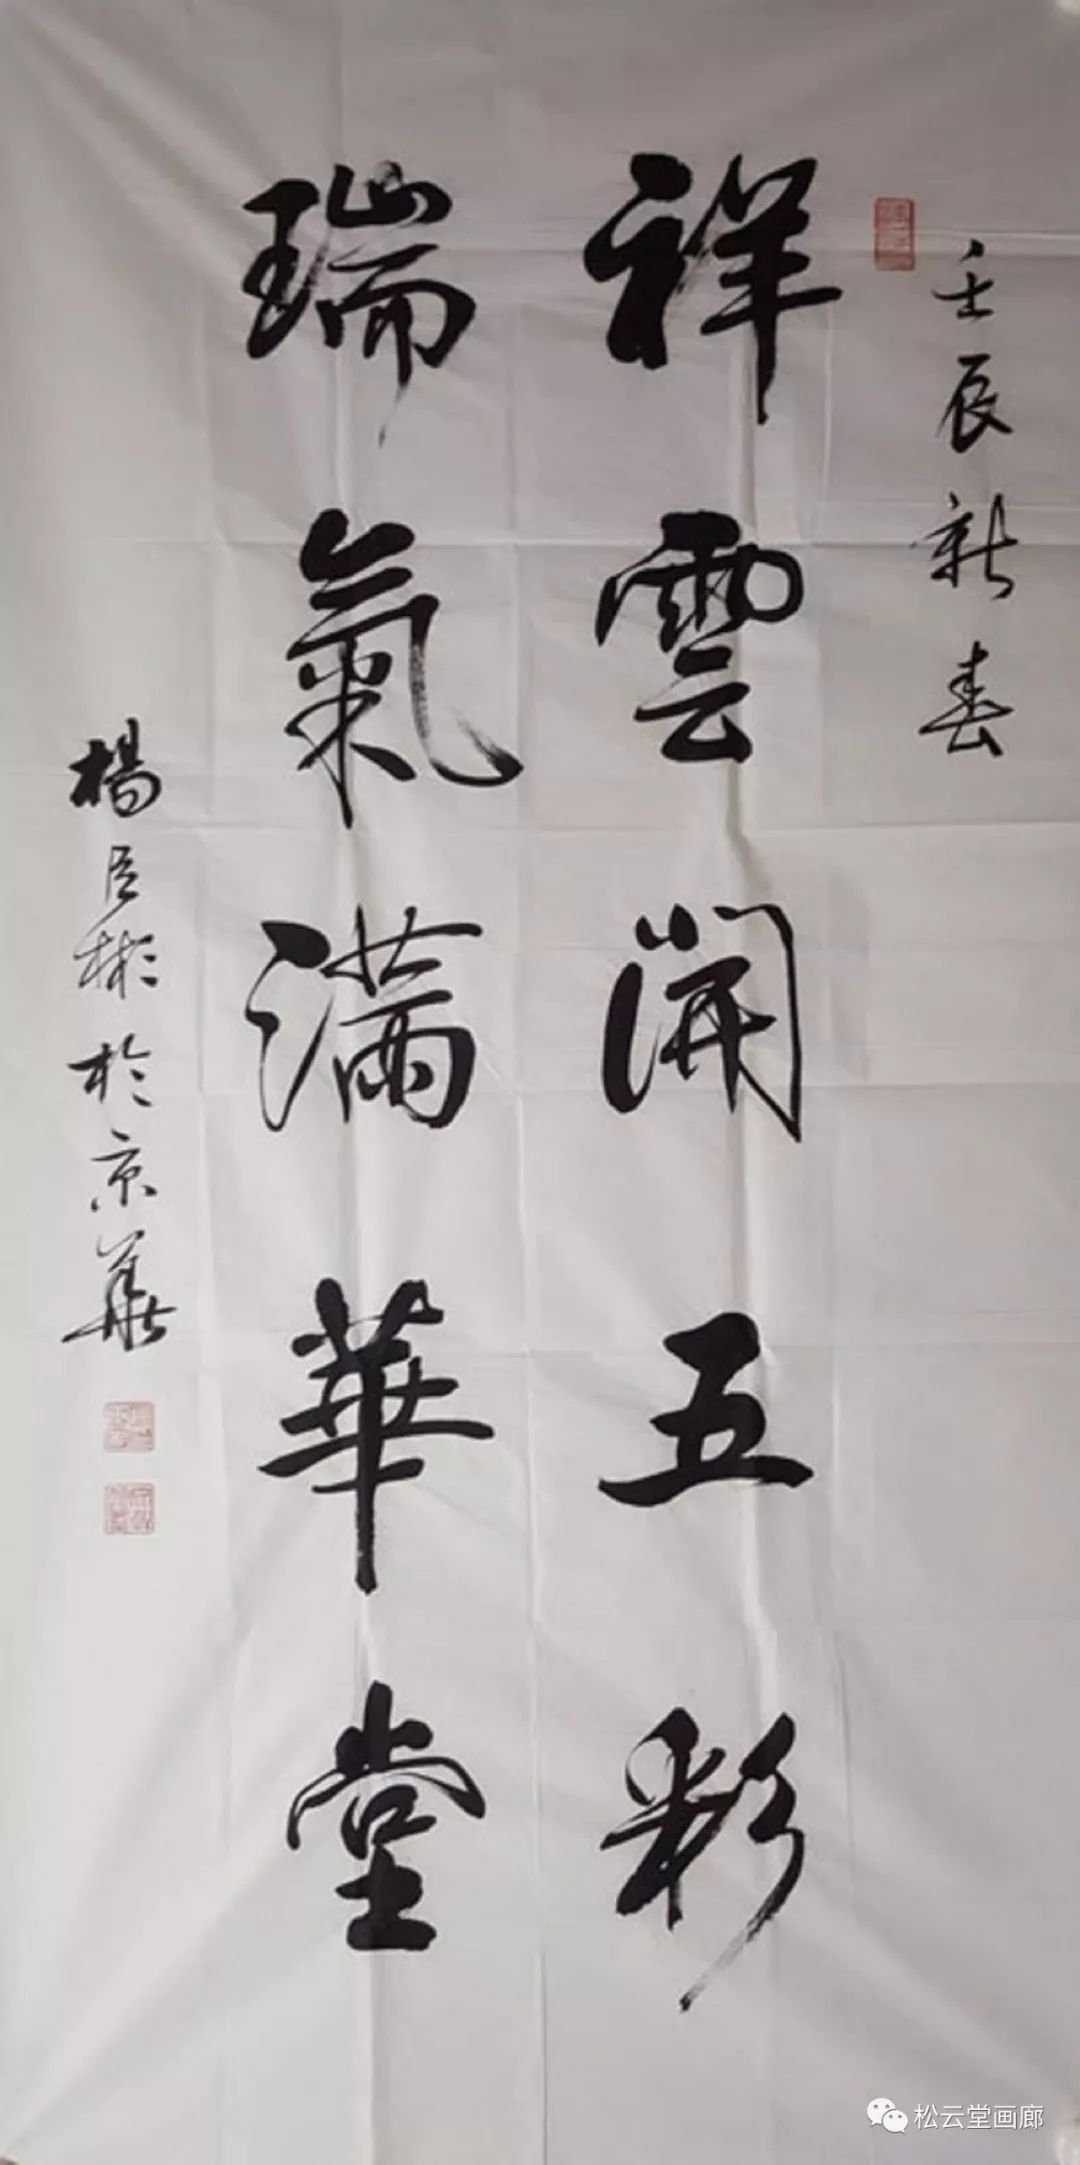 壬辰新春
祥雲開五彩
瑞氣滿華堂
楊臣彬於京華
松云堂画廊